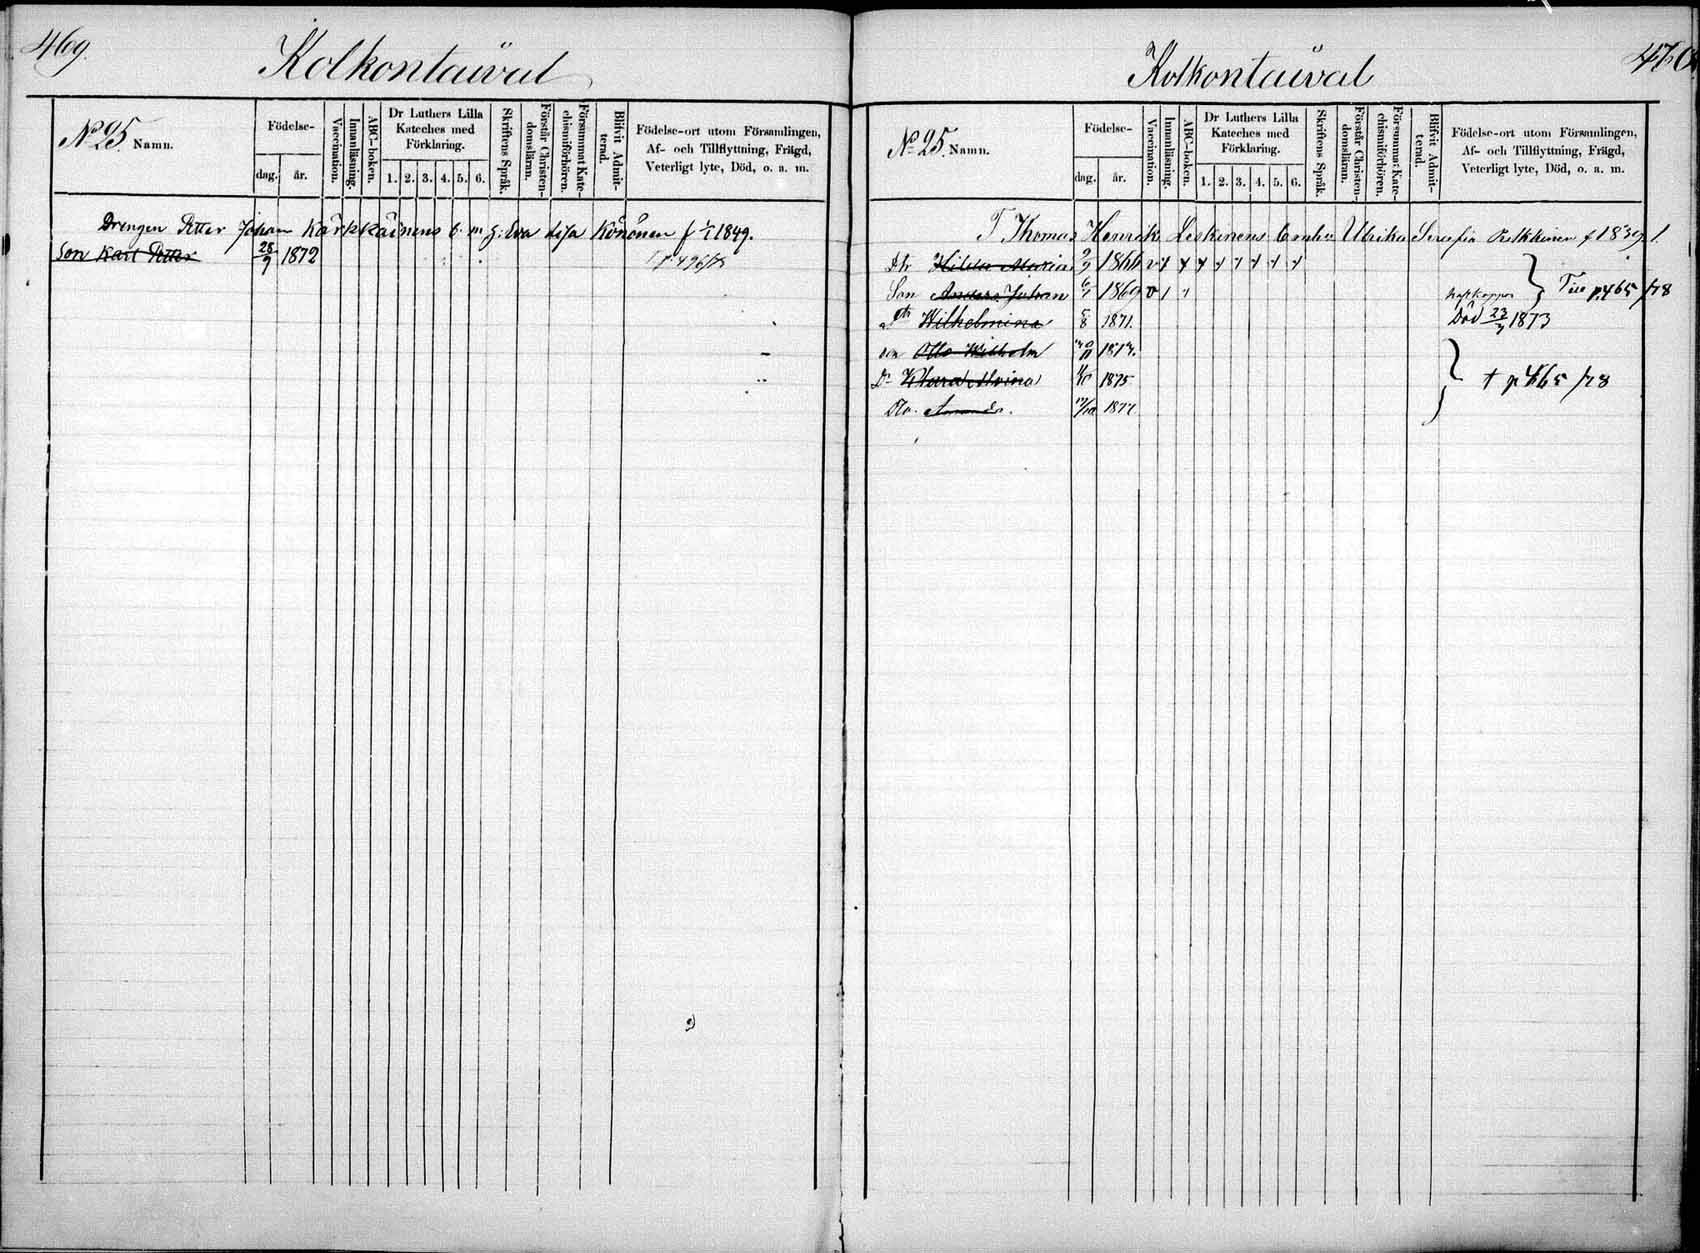 469.
Kolkontaival
No 25. Namn.
Födelse-
dag.
år.
Vaccination.
Innanläsning.
ABC-boken.
Dr Luthers Lilla
Kateches med
Förklaring.
1. 2. 3. 4. 5. 6.
Skriftens Språk.
Förstår Christen-
domsläran.
Försummat Kate-
chismiförhören.
Blifvit Admit-
terad.
Födelse-ort utom Församlingen,
Af- och Tillflyttning, Frägd,
Veterligt lyte, Död, o. a. m.
Drengen Petter Johan Kärkkäinens b. m. g: Eva Lisa Könönen f 1/1 1849.
Son Karl Petter 28/9 1872
470
Kolkontaival
No 25. Namn.
Födelse-
dag.
år.
Vaccination.
Innanläsning.
ABC-boken.
Dr Luthers Lilla
Kateches med
Förklaring.
1. 2. 3. 4. 5. 6.
Skriftens Språk.
Förstår Christen-
domsläran.
Försummat Kate-
chismiförhören.
Blifvit Admit-
terad.
Födelse-ort utom Församlingen,
Af- och Tillflyttning, Frägd,
Veterligt lyte, Död, o. a. m.
T Thomas Henrik Leskinens Enka Ulrika Serafia f 1839
Dtr Hilda Maria 1866
Son Anders Johan 1869 Till p. 465 /78
Dtr Wilhelmina 5/8 1871. Död 23/7 1873
son Otto Wilhelm
Dr Klara Alvina 1875 p 465 /78
Dtr. Amanda. 1877